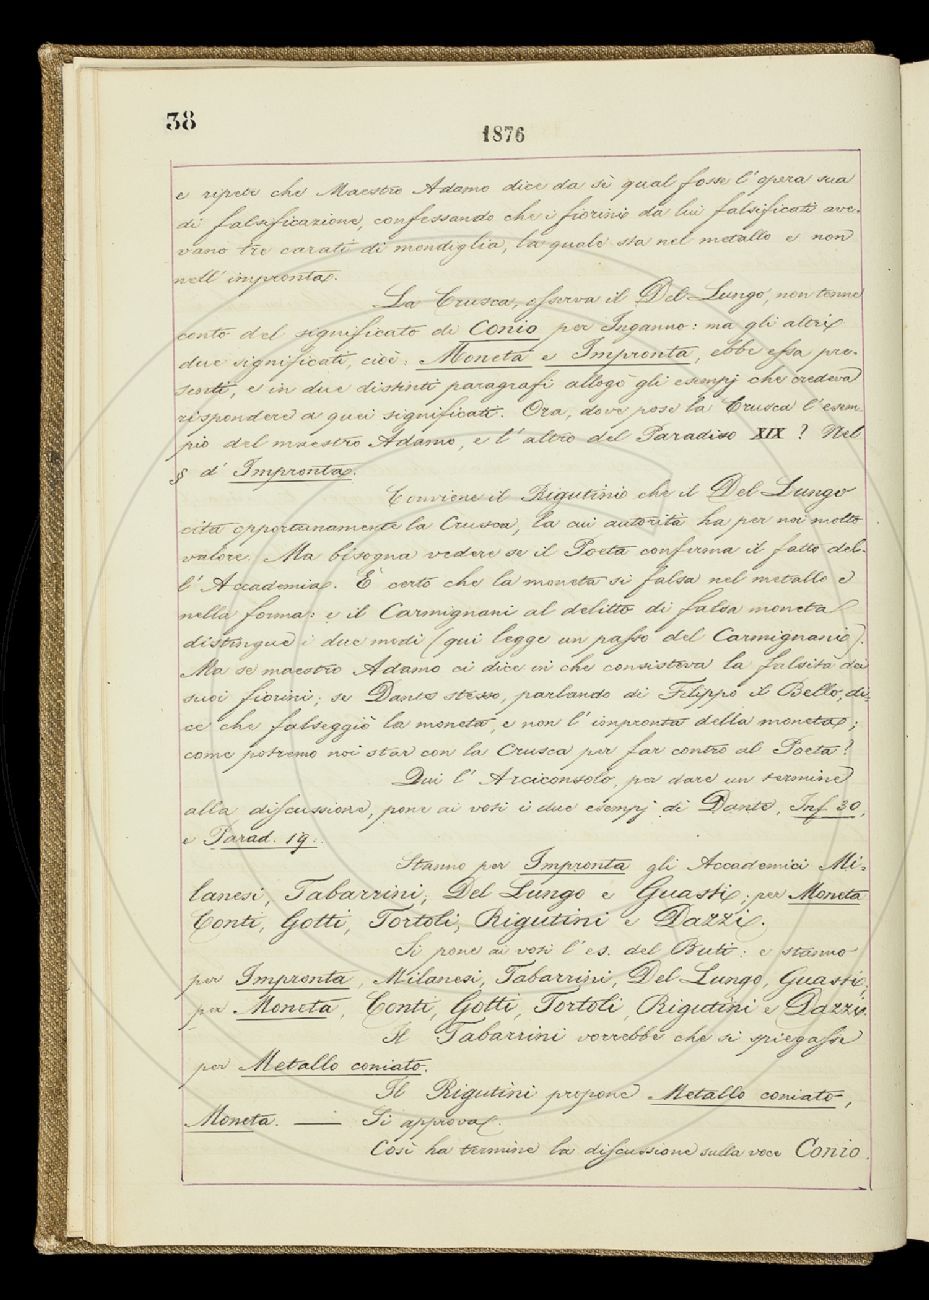 38
1876
e ripete che Maestro Adamo dice da sè qual fosse l'opera sua
di falsificazione, confessando che i fiorini da lui falsificati ave-
vano tre carati di mondiglia, la quale sta nel metallo e non
nell'impronta.
La Crusca, osserva il Del Lungo, non tenne
conto del significato di Conio per Inganno: ma gli altri
due significati, cioè: Moneta e Impronta, ebbe essa pre-
senti, e in due distinti paragrafi allogò gli esempj che credeva
rispondere a quei significati. Ora, dove pose la Crusca l'esem
pio del maestro Adamo, e l'altro del Paradiso XIX? Nel
§ d' Impronta.
Conviene il Rigutini che il Del Lungo
cita opportunamente la Crusca, la cui autorità ha per noi molto
valore. Ma bisogna vedere se il Poeta conferma il fatto del-
l'Accademia. È certo che la moneta si falsa nel metallo e
nella forma: e il Carmignani al delitto di falsa moneta
distingue i due modi (qui legge un passo del Carmignani).
Ma se maestro Adamo ci dice in che consisteva la falsità dei
suoi fiorini; se Dante stesso, parlando di Filippo il Bello, di-
ce che falseggiò la moneta, e non l'impronta della moneta;
come potremo noi star con la Crusca per far contro al Poeta?
Qui l'Arciconsolo, per dare un termine
alla discussione, pone ai voti i due esempj di Dante, Inf. 30,
e Parad. 19.
Stanno per Impronta gli Accademici Mi-
lanesi, Tabarrini, Del Lungo e Guasti; per Moneta
Conti, Gotti, Tortoli, Rigutini e Dazzi.
Si pone ai voti l'es. del Buti: e stanno
per Impronta, Milanesi, Tabarrini, Del Lungo, Guasti;
per Moneta, Conti, Gotti, Tortoli, Rigutini e Dazzi.
Il Tabarrini vorrebbe che si spiegasse
per Metallo coniato.
Il Rigutini propone Metallo coniato,
Moneta. — Si approva.
Così ha termine la discussione sulla voce Conio.